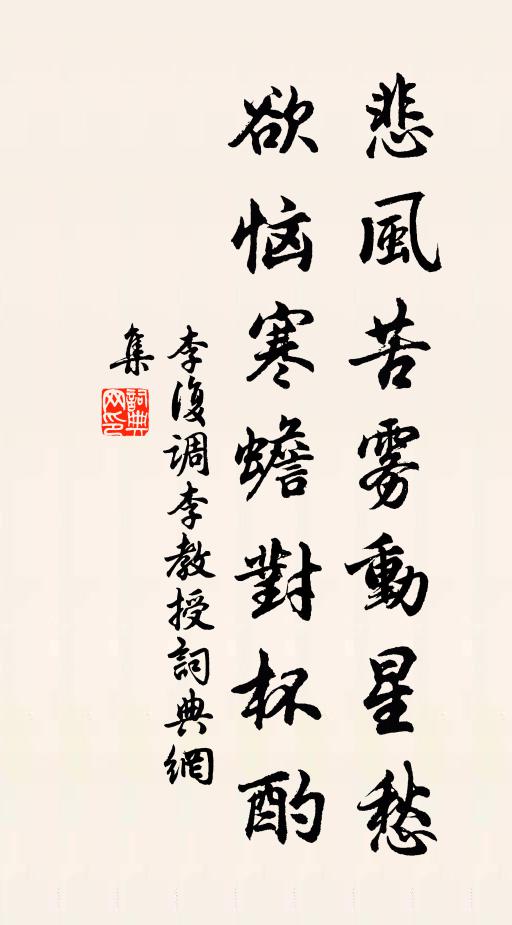 悲風苦雾動星愁
欲恼寒蟾對杯酌
李復调李教授詞典網
集
詞典网印